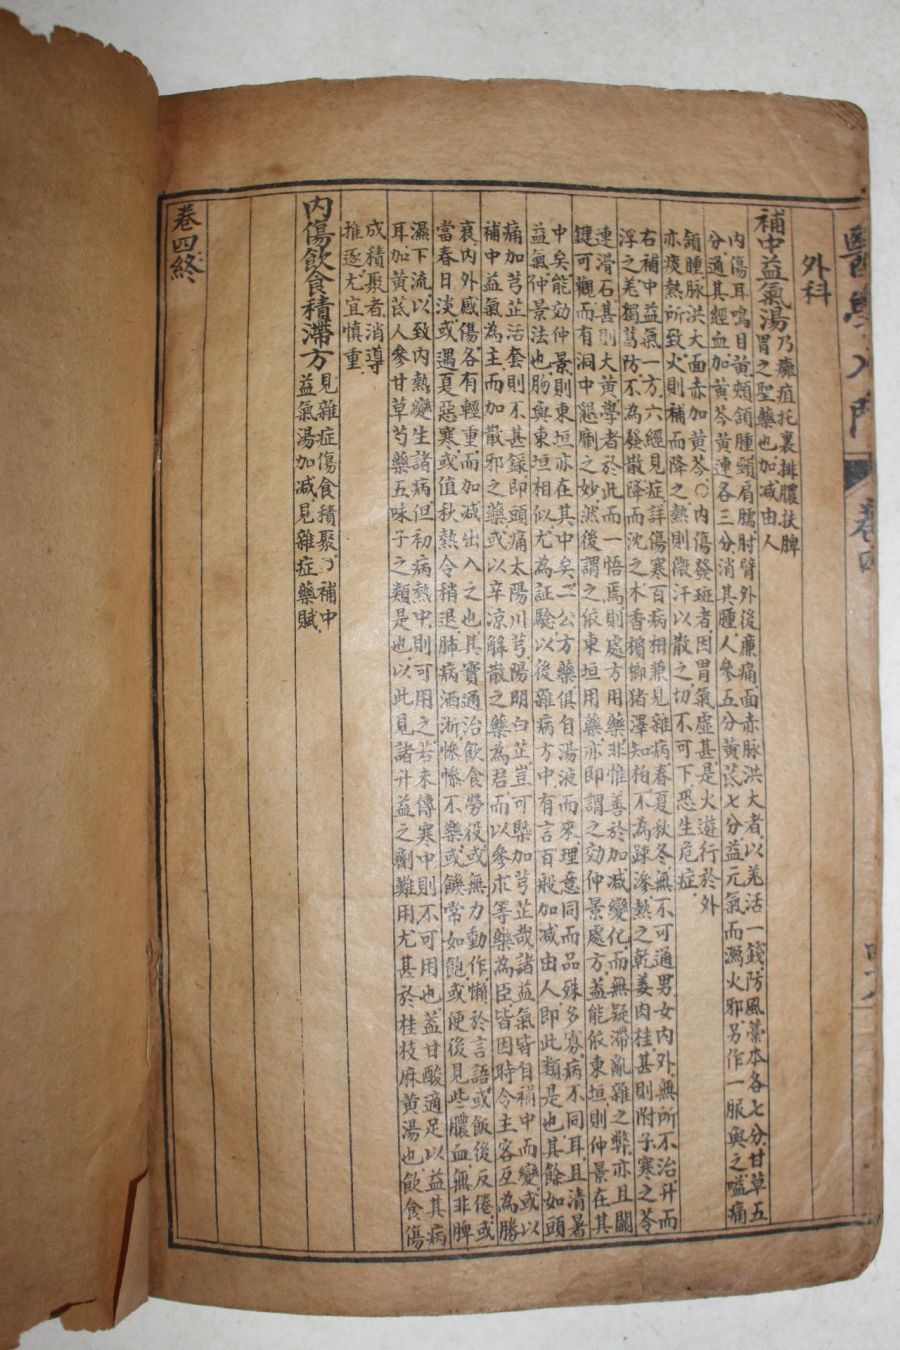 醫學入門 卷四
外科
補中益氣湯乃癰疽托裏排膿扶脾
胃之聖藥也加減由人
內傷耳鳴目黃頰頷腫頸肩臑肘臂外後廉痛面赤脉洪大者以羌活一錢防風藁本各七分甘草五
分通其經血加黃芩黃連各三分消其腫人參五分黃芪七分益元氣而瀉火邪另作一服與之嗌痛
頷腫脉洪大面赤加黃芩○內傷發斑者因胃氣虛甚是火遊行於外
亦痰熱所致火則補而降之熱則微汗以散之切不可下恐生危症
右補中益氣一方六經見症詳傷寒百病相兼見雜病春夏秋冬無不可通男女內外無所不治升而
浮之羌獨葛防不為發散降而沈之木香檳榔猪澤知柏不為疎滲熱之乾姜肉桂甚則附子寒之芩
連滑石甚則大黃學者於此而一悟焉則處方用藥非惟善於加減變化而無疑滯亂雜之弊亦且關
鍵可觀而有洞中懇劘之妙然後謂之依東垣用藥亦即謂之効仲景處方蓋能依東垣則仲景在其
中矣能効仲景則東垣亦在其中矣二公方藥俱自湯液而來理意同而品殊多寡病不同耳且清暑
益氣仲景法也肠與東垣相似尤為証驗以後雜病方中有言百般加减由人即此類是也其餘如頭
痛加芎芷活套則不甚錄即頭痛太陽川芎陽明白芷豈可槩加芎芷哉諸益氣皆自補中而變或以
補中益氣為主而加散邪之藥或以辛凉解散之藥為君而以參朮等藥為臣皆因時令主客互為勝
衰內外感傷各有輕重而加減出入之也其實通治飲食勞役或無力動作懶於言語或飯後反倦或
當春日淡或遇夏惡寒或值秋熱令稍退肺病洒淅慘慘不樂或饑常如飽或便後見些膿血無非脾
濕下流以致內熱變生諸病但初病熱中則可用之若未傳寒中則不可用也蓋甘酸適足以益其病
耳加黃芪人參甘草芍藥五味子之類是也以此見諸升益之劑難用尤甚於桂枝麻黃湯也飲食傷
成積聚者消導
推逐尤宜慎重
內傷飲食積滯方見雜症傷食積聚○補中
益氣湯加減見雜症藥賦
卷四終